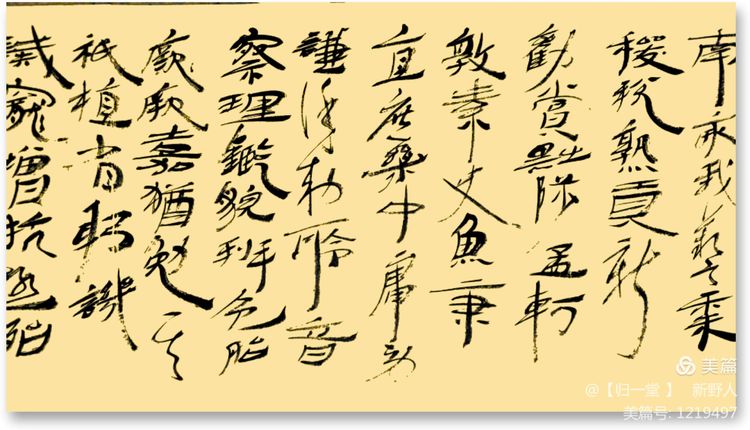 南畝我藝黍
稷税熟貢新
勸賞黜陟孟軻
敦素史魚秉
直庶幾中庸勞
謙謹敕聆音
察理鑑貌辨色貽
厥厥嘉猷勉其
祗植省躬譏
誡寵增抗極殆
美篇
@【归一堂 】 新野人
美篇号: 1219497